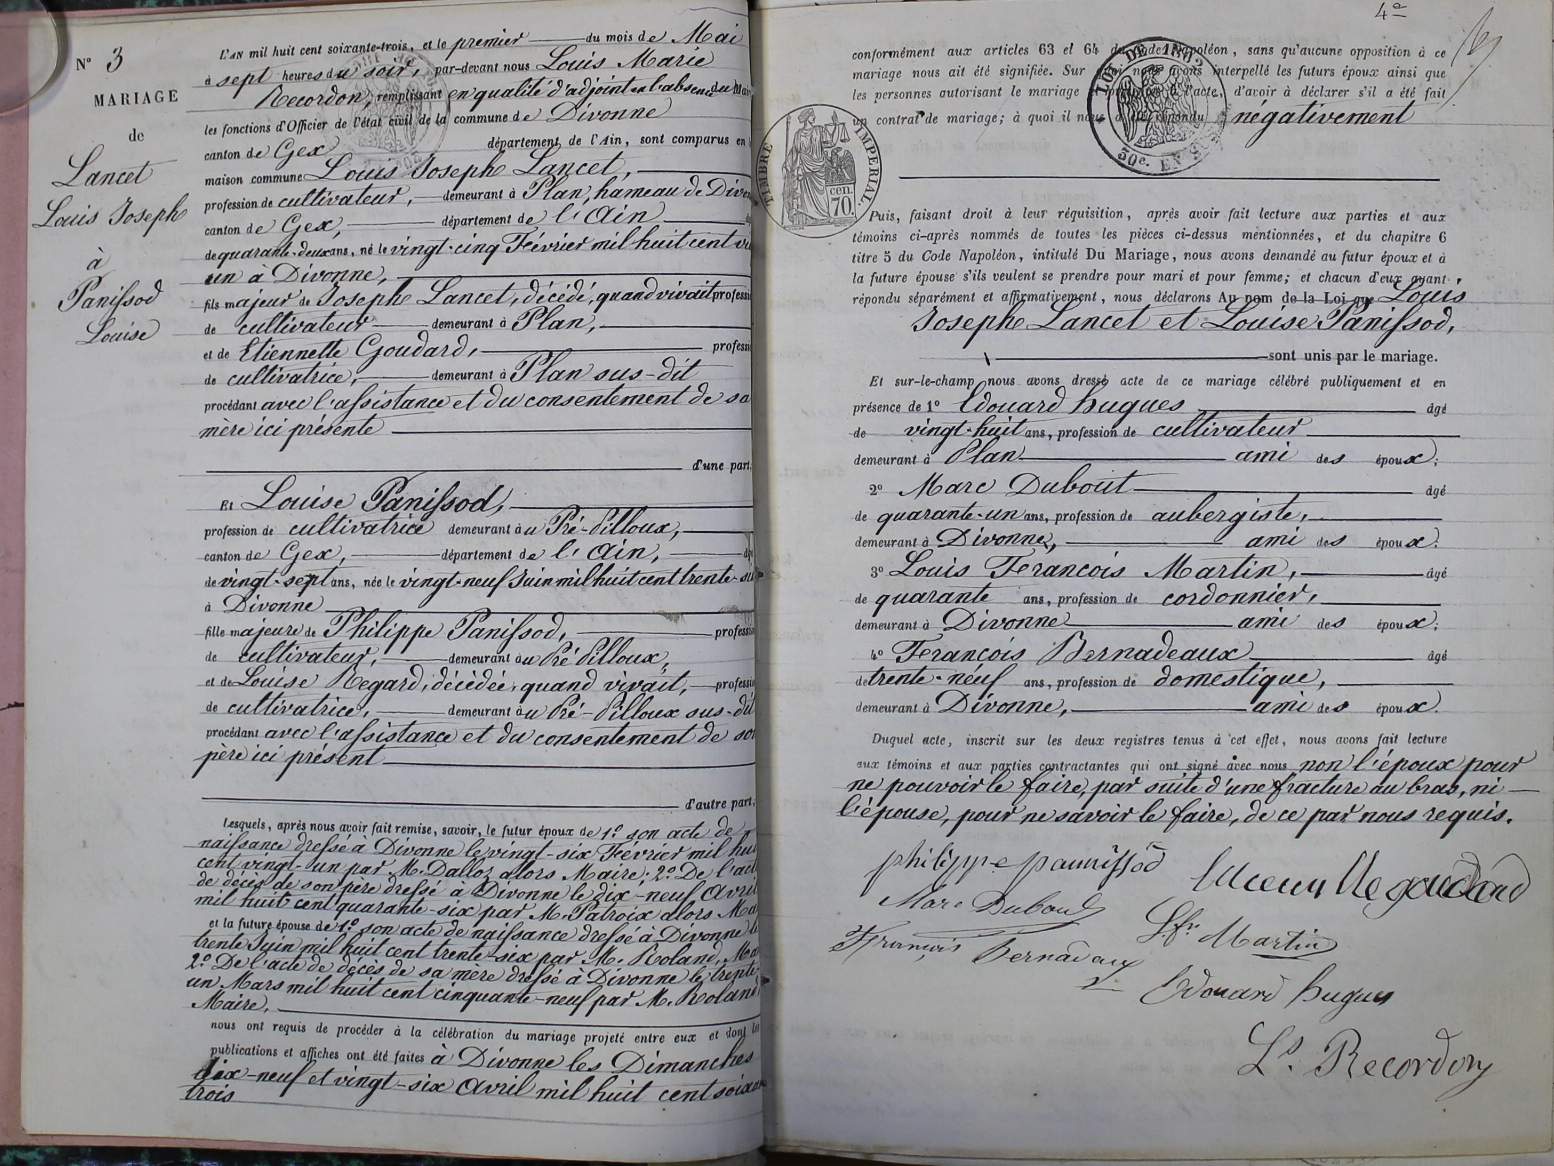 N° 3
MARIAGE
de
Lancet
Louis Joseph
à
Panissod
Louise
L'AN mil huit cent soixante-trois, et le premier du mois de Mai
à sept heures du soir, par-devant nous Louis Marie
Recordon, remplissant en qualité d'adjoint en l'absence du Maire
les fonctions d'Officier de l'état civil de la commune de Divonne
canton de Gex département de l'Ain, sont comparus en
maison commune Louis Joseph Lancet,
profession de cultivateur, demeurant à Plan, hameau de Divon
canton de Gex, département de l'Ain
de quarante-deux ans, né le vingt-cinq Février mil huit cent vi
un à Divonne,
fils majeur de Joseph Lancet, décédé, quand vivait professi
de cultivateur demeurant à Plan,
et de Etiennette Goudard, professi
de cultivatrice, demeurant à Plan sus-dit
procédant avec l'assistance et du consentement de sa
mère ici présente
d'une part,
Et Louise Panissod,
profession de cultivatrice demeurant au Pré-Pilloux,
canton de Gex, département de l'Ain, âg
de vingt-sept ans, née le vingt-neuf Juin mil huit cent trente-si
à Divonne
fille majeure de Philippe Panissod, professi
de cultivateur, demeurant au Pré Pilloux,
et de Louise Regard, décédée, quand vivait, professi
de cultivatrice, demeurant au Pré-Pilloux sus-dit
procédant avec l'assistance et du consentement de son
père ici présent
d'autre part,
Lesquels, après nous avoir fait remise, savoir, le futur époux de 1° son acte de
naissance dressé à Divonne le vingt-six Février mil huit
cent vingt-un par M. Dalloz alors Maire; 2° De l'acte
de décès de son père dressé à Divonne le dix-neuf Avril
mil huit cent quarante-six par M. Patroix alors Ma
et la future épouse de 1° son acte de naissance dressé à Divonne le
trente Juin mil huit cent trente-six par M. Roland, Ma
2° De l'acte de décès de sa mère dressé à Divonne le trente-
un Mars mil huit cent cinquante-neuf par M. Roland,
Maire,
nous ont requis de procéder à la célébration du mariage projeté entre eux et dont les
publications et affiches ont été faites à Divonne les Dimanches
dix-neuf et vingt-six Avril mil huit cent soixante
trois
4e
conformément aux articles 63 et 64 du Code Napoléon, sans qu'aucune opposition à ce
mariage nous ait été signifiée. Sur quoi, nous avons interpellé les futurs époux ainsi que
les personnes autorisant le mariage d'avoir à déclarer s'il a été fait
un contrat de mariage; à quoi il nous a été répondu négativement
LOI DE 1862
30c. EN SUS
TIMBRE IMPERIAL
cen.
70.
Puis, faisant droit à leur réquisition, après avoir fait lecture aux parties et aux
témoins ci-après nommés de toutes les pièces ci-dessus mentionnées, et du chapitre 6
titre 5 du Code Napoléon, intitulé Du Mariage, nous avons demandé au futur époux et à
la future épouse s'ils veulent se prendre pour mari et pour femme; et chacun d'eux ayant
répondu séparément et affirmativement, nous déclarons Au nom de la Loi que Louis
Joseph Lancet et Louise Panissod,
sont unis par le mariage.
Et sur-le-champ nous avons dressé acte de ce mariage célébré publiquement et en
présence de 1° Edouard Hugues âgé
de vingt-huit ans, profession de cultivateur
demeurant à Plan ami des époux;
2° Marc Dubout âgé
de quarante-un ans, profession de aubergiste,
demeurant à Divonne, ami des époux.
3° Louis François Martin, âgé
de quarante ans, profession de cordonnier,
demeurant à Divonne ami des époux;
4° François Bernadeaux âgé
de trente-neuf ans, profession de domestique,
demeurant à Divonne, ami des époux.
Duquel acte, inscrit sur les deux registres tenus à cet effet, nous avons fait lecture
aux témoins et aux parties contractantes qui ont signé avec nous non l'époux pour
ne pouvoir le faire, par suite d'une fracture au bras, ni
l'épouse, pour ne savoir le faire, de ce par nous requis.
philippe pannissod
Marc Dubout
L. fs Martin
François Bernadaux
Edouard hugues
Ls. Recordon